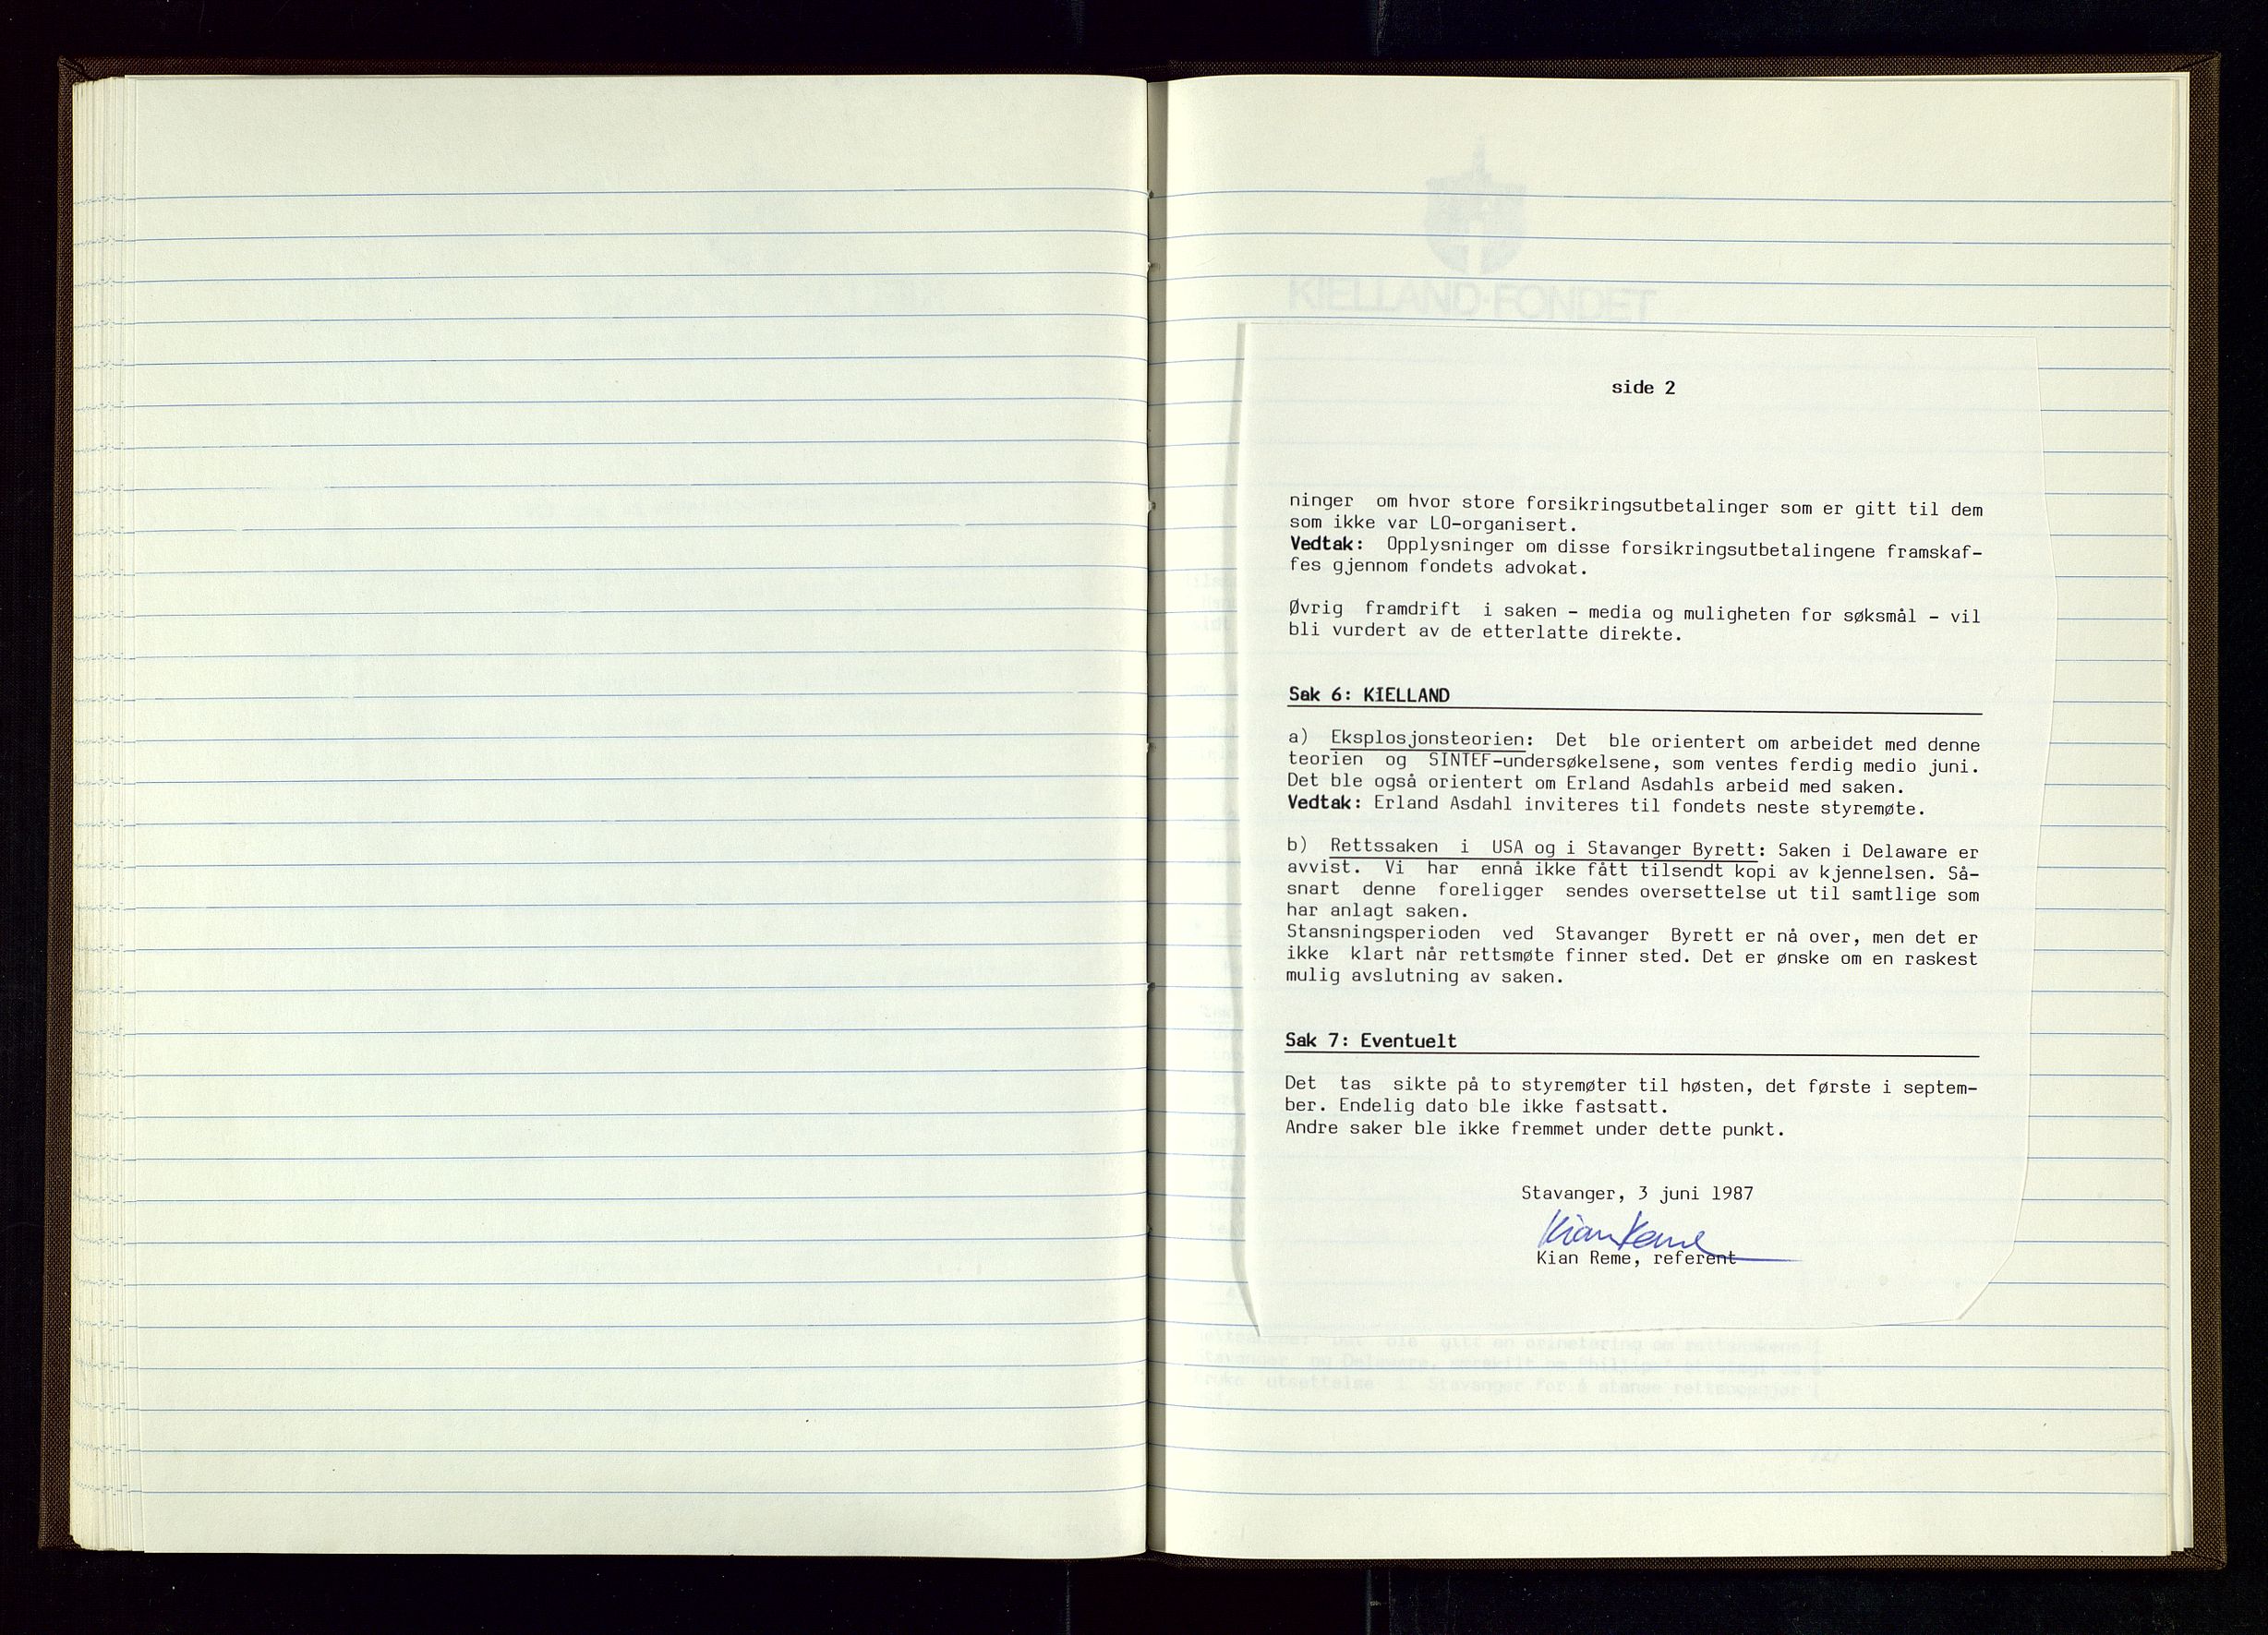 KIELLAND·FONDET
side 2
ninger om hvor store forsikringsutbetalinger som er gitt til dem
som ikke var LO-organisert.
Vedtak: Opplysninger om disse forsikringsutbetalingene framskaf-
fes gjennom fondets advokat.
Øvrig framdrift i saken - media og muligheten for søksmål - vil
bli vurdert av de etterlatte direkte.
Sak 6: KIELLAND
a) Eksplosjonsteorien: Det ble orientert om arbeidet med denne
teorien og SINTEF-undersøkelsene, som ventes ferdig medio juni.
Det ble også orientert om Erland Asdahls arbeid med saken.
Vedtak: Erland Asdahl inviteres til fondets neste styremøte.
b) Rettssaken i USA og i Stavanger Byrett: Saken i Delaware er
avvist. Vi har ennå ikke fått tilsendt kopi av kjennelsen. Så-
snart denne foreligger sendes oversettelse ut til samtlige som
har anlagt saken.
Stansningsperioden ved Stavanger Byrett er nå over, men det er
ikke klart når rettsmøte finner sted. Det er ønske om en raskest
mulig avslutning av saken.
Sak 7: Eventuelt
Det tas sikte på to styremøter til høsten, det første i septem-
ber. Endelig dato ble ikke fastsatt.
Andre saker ble ikke fremmet under dette punkt.
Stavanger, 3 juni 1987
Kian Reme
Kian Reme, referent